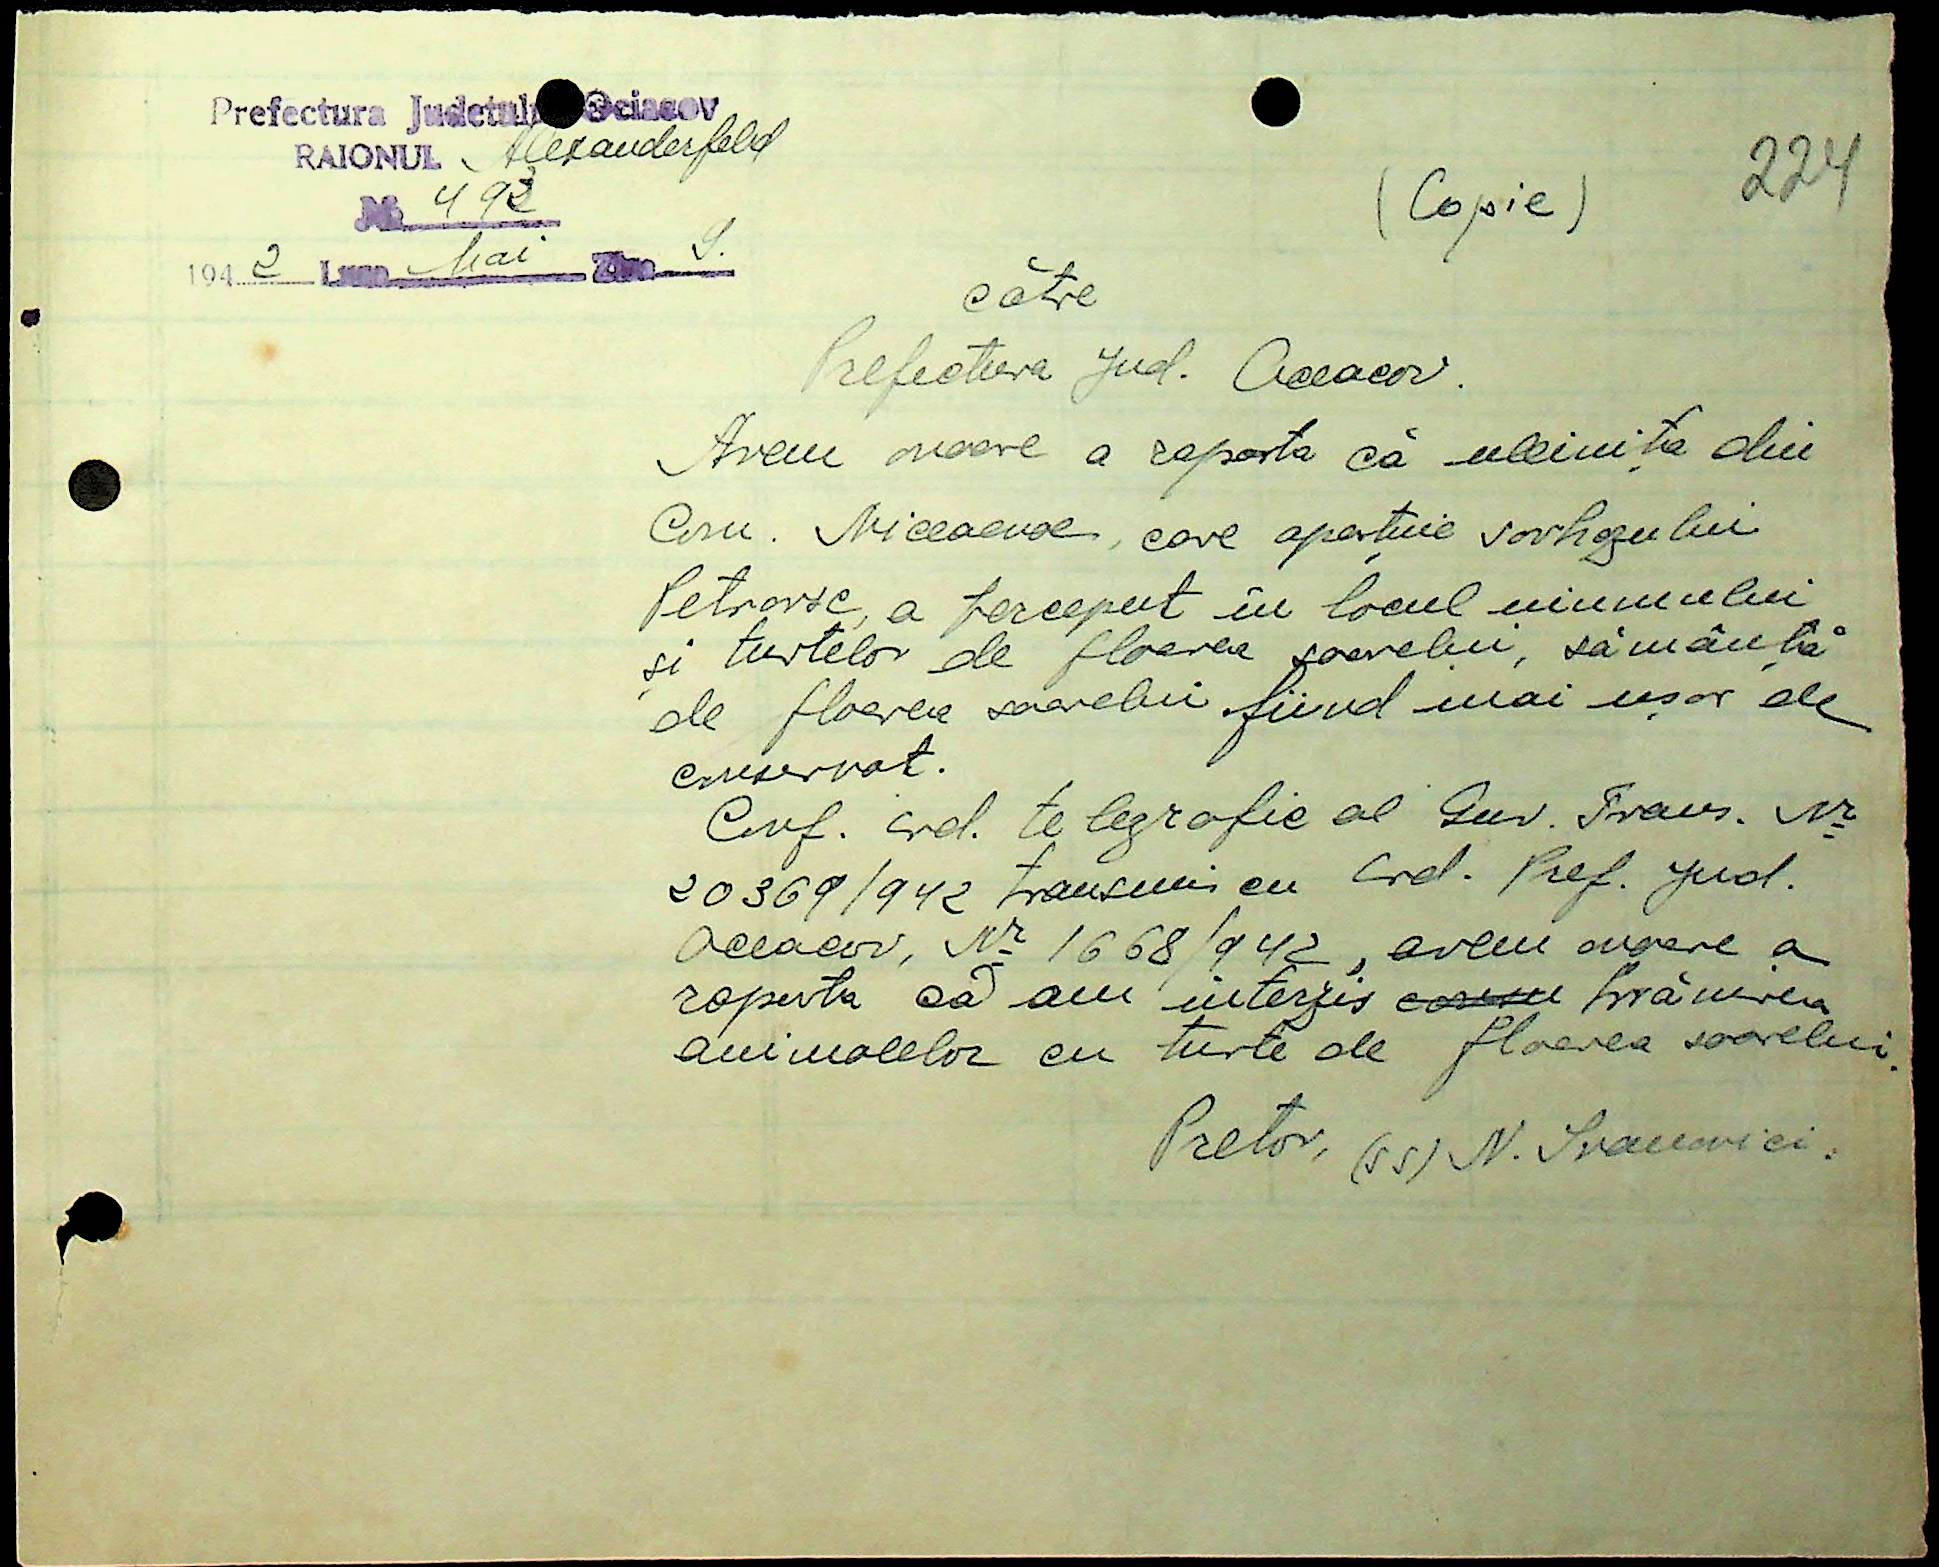 Prefectura Judetulu Ociacov
RAIONUL Alexanderfeld
№ 492
1942 Luna Mai Ziua 9.
224
(Copie)
către
Prefectura Jud. Oceacov.
Avem onoare a raporta că uleinița din
Com. , care aparține sovhozului
Petrovsc, a perceput în locul uiumului
și turtelor de floarea soarelui, sămânță
de floarea soarelui fiind mai ușor de
conservat.
Conf. ord. telegrafic al Guv. Trans. Nr
20369/942 transmis cu ord. Pref. Jud.
Oceacov, Nr 1668/942, avem onoare a
raporta că am interzis hrănirea
animalelor cu turte de floarea soarelui.
Pretor, (ss) N. Ivanovici.